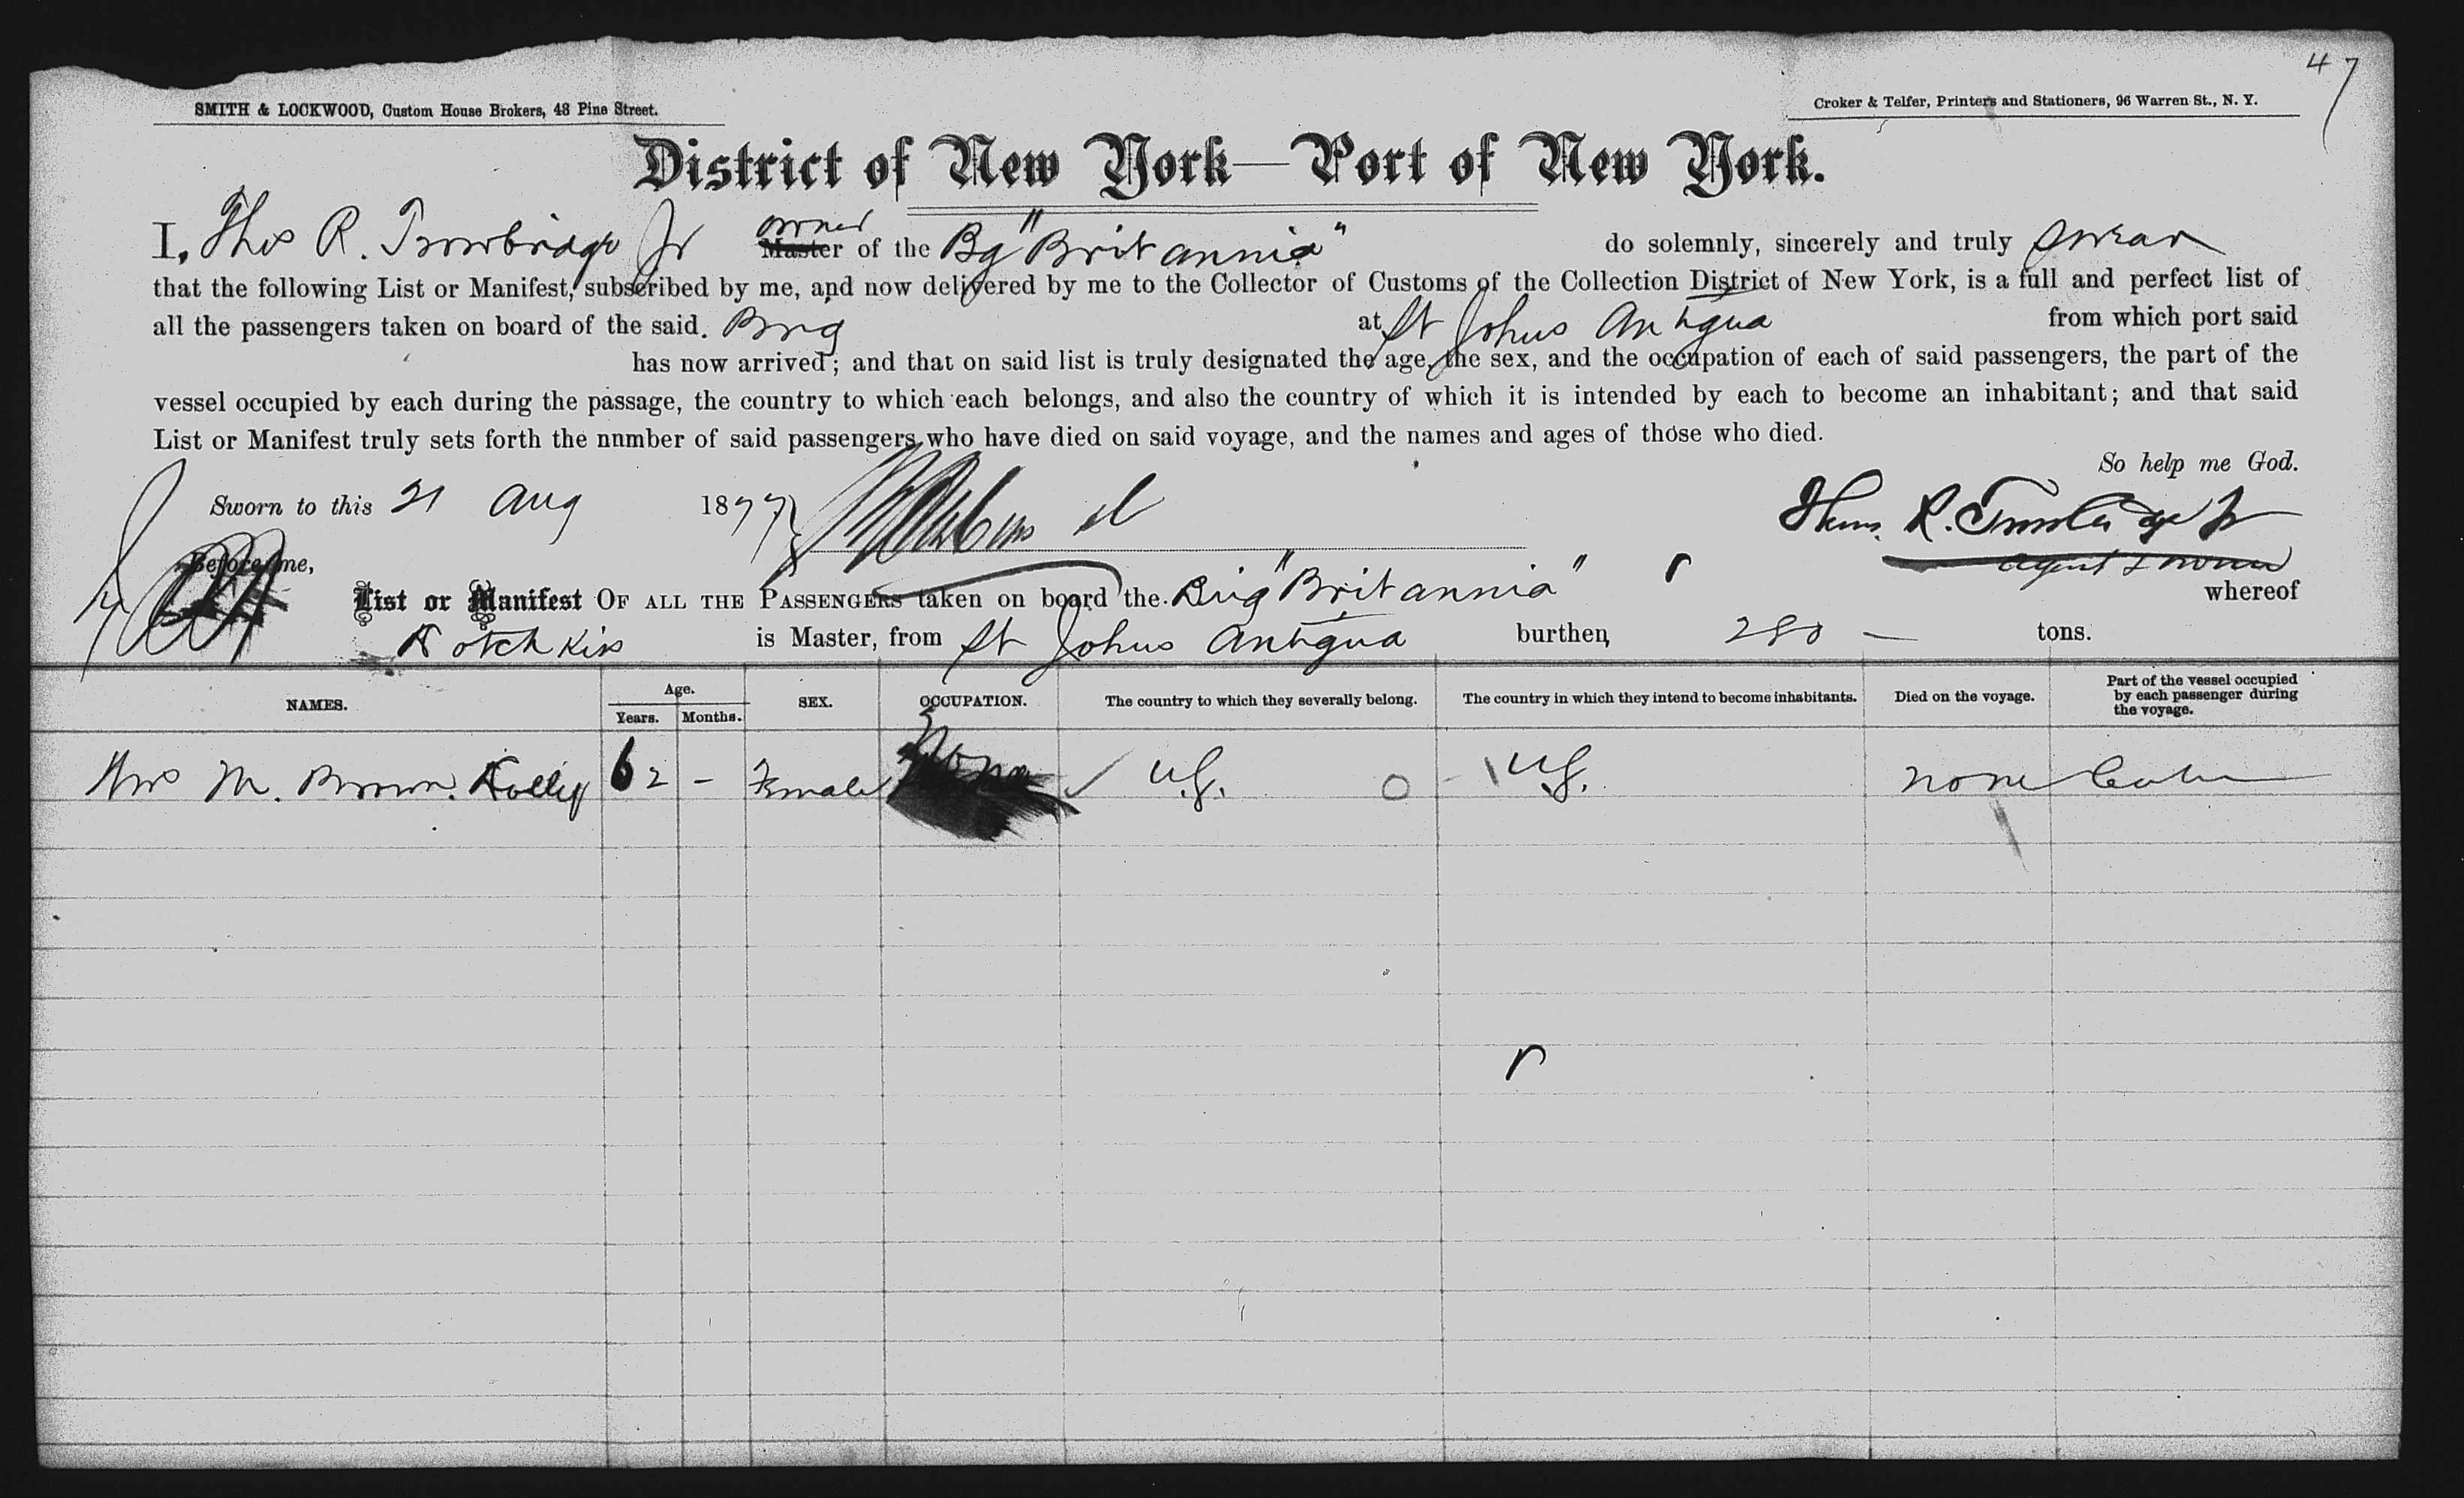 47
SMITH & LOCKWOOD, Custom House Brokers, 48 Pine Street.
Croker & Telfer, Printers and Stationers, 96 Warren St., N. Y.
District of New York—Port of New York.
I, Thos R. Trowbridge Jr owner Master of the Bg "Britannia" do solemnly, sincerely and truly swear
that the following List or Manifest, subscribed by me, and now delivered by me to the Collector of Customs of the Collection District of New York, is a full and perfect list of
all the passengers taken on board of the said. Brig at St Johns Antigua from which port said
has now arrived; and that on said list is truly designated the age, the sex, and the occupation of each of said passengers, the part of the
vessel occupied by each during the passage, the country to which each belongs, and also the country of which it is intended by each to become an inhabitant; and that said
List or Manifest truly sets forth the nnmber of said passengers who have died on said voyage, and the names and ages of those who died.
So help me God.
Sworn to this 21 Aug 1877
Thos. R. Trowbridge Jr
Before me,
agent & owner
List or Manifest OF ALL THE PASSENGERS taken on board the Brig "Britannia" whereof
Hotchkiss is Master, from St Johns Antigua burthen, 280 — tons.
NAMES. Age. Years. Months. SEX. OCCUPATION. The country to which they severally belong. The country in which they intend to become inhabitants. Died on the voyage. Part of the vessel occupied by each passenger during the voyage.
Mrs M. Brown 62 - Female None U.S. U.S. none Cabin